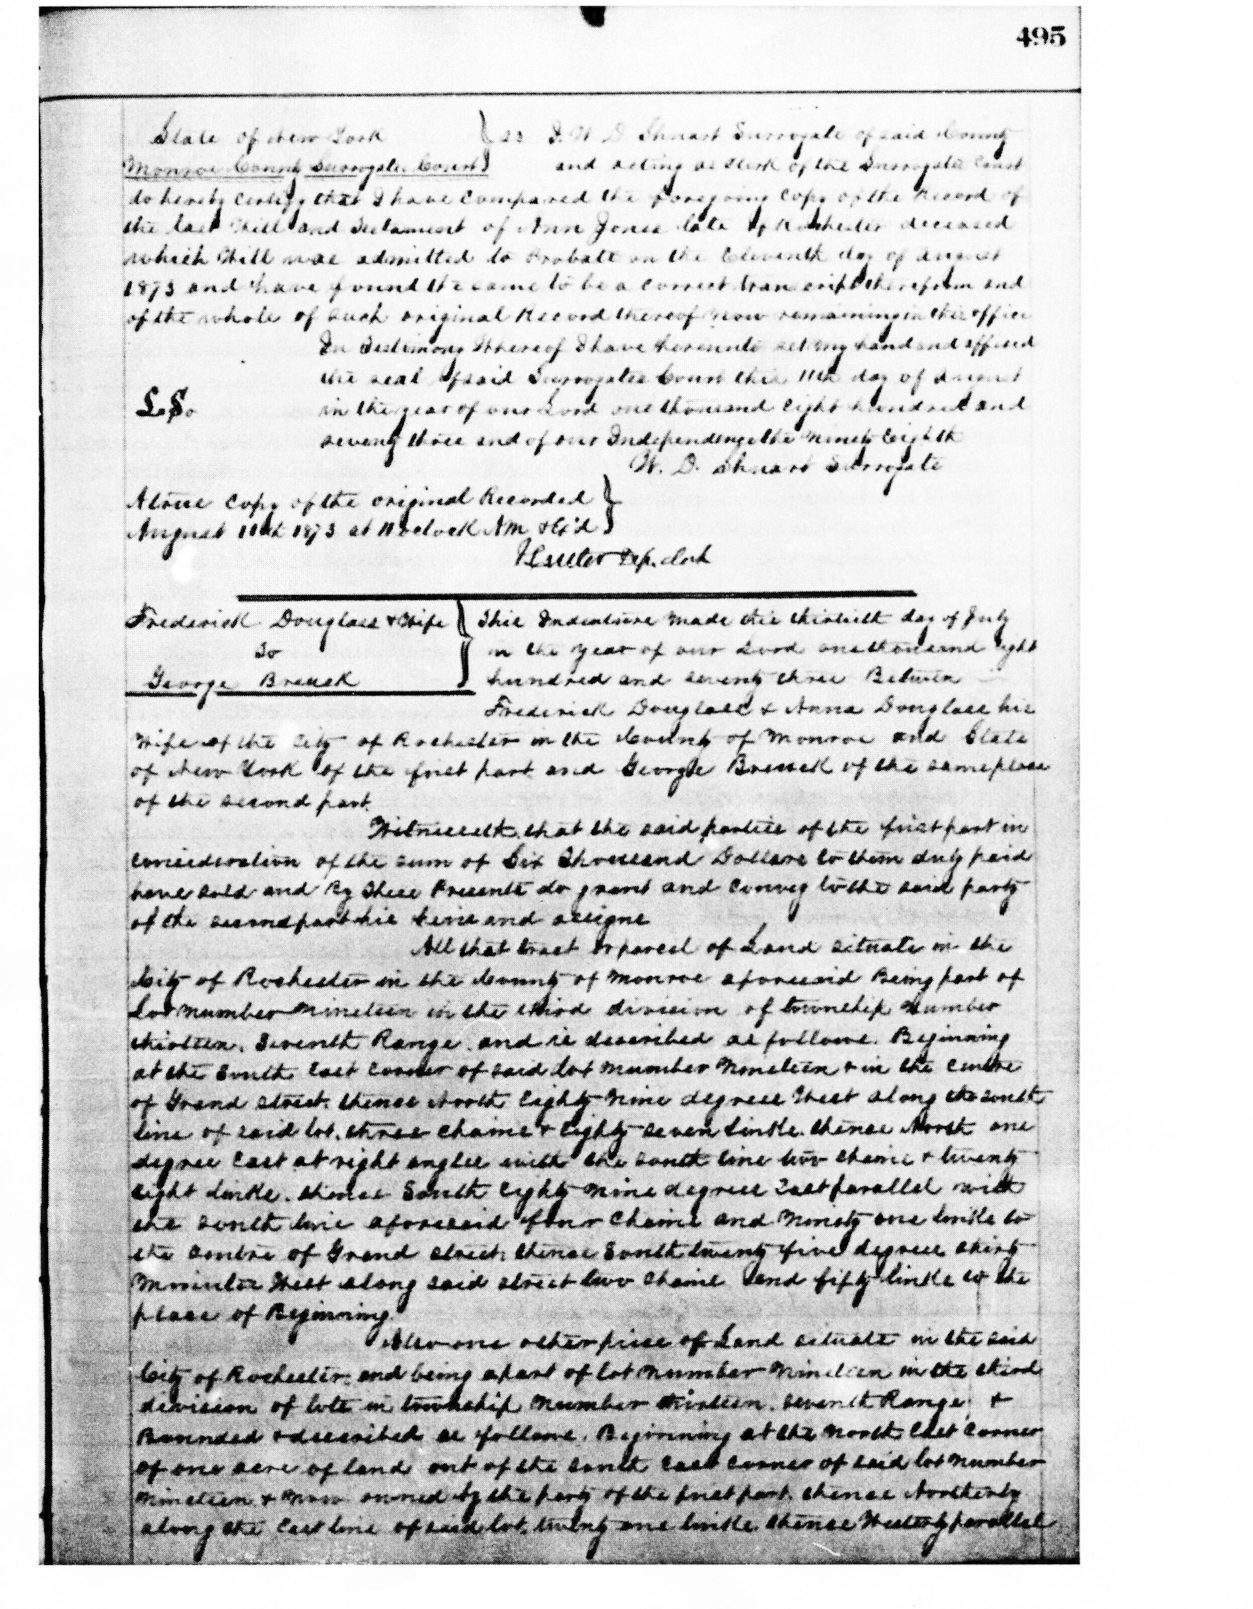 495
State of New York } ss I. W. D. Shuart Surrogate of said County
Monroe County Surrogates Court } and acting as Clerk of the Surrogates Court
do hereby Certify that I have Compared the foregoing Copy of the Record of
the last Will and Testament of Ann Jones late of Rochester deceased
which Will was admitted to Probate on the Eleventh day of August
1873 and have found the same to be a correct transcript therefrom and
of the whole of such original Record thereof now remaining in this office
In Testimony Whereof I have hereunto set my hand and affixed
the seal of said Surrogates Court this 11th day of August
L.S. in the year of our Lord one thousand Eight hundred and
seventy three and of our Independence the Ninety Eighth
W. D. Shuart Surrogate
A true Copy of the original Recorded
August 11th 1873 at 11 oclock AM & Ex'd
Dep. Clerk
Frederick Douglass & Wife } This Indenture Made this thirtieth day of July
To in the year of our Lord one thousand Eight
George Breuck hundred and seventy three Between
Frederick Douglass & Anna Douglass his
Wife of the City of Rochester in the County of Monroe and State
of New York of the first part and George Breuck of the same place
of the second part.
Witnesseth that the said parties of the first part in
consideration of the sum of Six Thousand Dollars to them duly paid
have sold and By These Presents do grant and Convey to the said party
of the second part his heirs and assigns
All that tract or parcel of Land situate in the
City of Rochester in the County of Monroe aforesaid Being part of
Lot Number Nineteen in the third division of township Number
thirteen. Seventh Range. and is described as follows. Beginning
at the South East Corner of said lot Number Nineteen & in the Centre
of Grand street. thence North Eighty Nine degrees West along the south
line of said lot. three chains & Eighty seven links. thence North one
degree East at right angles with the south line two chains & twenty
Eight links. thence South Eighty Nine degrees East parallel with
the south line aforesaid four Chains and Ninety one links to
the centre of Grand street. thence South twenty five degrees thirty
Minutes West along said street two chains and fifty links to the
place of Beginning.
Also one other piece of Land situate in the said
City of Rochester and being a part of lot Number Nineteen in the third
division of lots in township Number thirteen. seventh Range. &
Bounded & described as follows. Beginning at the North East Corner
of one acre of land out of the south east corner of said lot Number
Nineteen & Now owned by the party of the first part. thence Northerly
along the East line of said lot. twenty one links. thence Westerly parallel